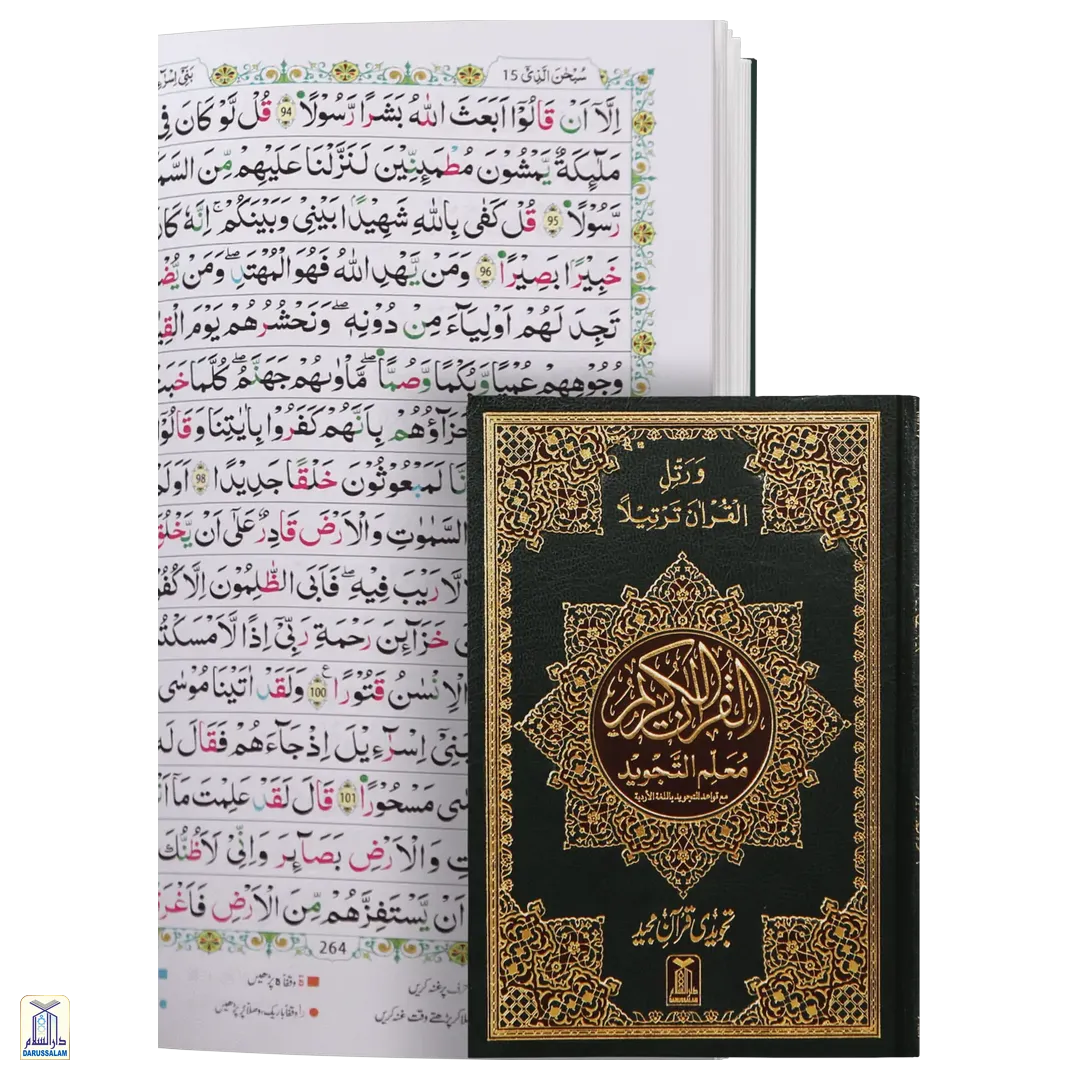 سُبْحٰنَ الَّذِیْۤ 15
بَنِیْۤ اِسْرَ
اِلَّاۤ اَنْ قَالُوْۤا اَبَعَثَ اللّٰهُ بَشَرًا رَّسُوْلًا 94 قُلْ لَّوْ كَانَ فِی
مَلٰٓئِكَةٌ یَّمْشُوْنَ مُطْمَئِنِّیْنَ لَنَزَّلْنَا عَلَیْهِمْ مِّنَ السَّمَ
رَّسُوْلًا 95 قُلْ كَفٰى بِاللّٰهِ شَهِیْدًۢا بَیْنِیْ وَبَیْنَكُمْ ؕ اِنَّهٗ كَانَ
خَبِیْرًۢا بَصِیْرًا 96 وَمَنْ یَّهْدِ اللّٰهُ فَهُوَ الْمُهْتَدِ ۚ وَمَنْ یُّضْ
تَجِدَ لَهُمْ اَوْلِیَآءَ مِنْ دُوْنِهٖ ؕ وَنَحْشُرُهُمْ یَوْمَ الْقِیٰ
وُجُوْهِهِمْ عُمْیًا وَّبُكْمًا وَّصُمًّا ؕ مَاْوٰىهُمْ جَهَنَّمُ ؕ كُلَّمَا خَبَتْ
جَزَآؤُهُمْ بِاَنَّهُمْ كَفَرُوْا بِاٰیٰتِنَا وَقَالُوْۤا
نَّا لَمَبْعُوْثُوْنَ خَلْقًا جَدِیْدًا 98 اَوَلَمْ
السَّمٰوٰتِ وَالْاَرْضَ قَادِرٌ عَلٰۤى اَنْ یَّخْلُقَ
لَّا رَیْبَ فِیْهِ ؕ فَاَبَى الظّٰلِمُوْنَ اِلَّا كُفُ
خَزَآئِنَ رَحْمَةِ رَبِّیْۤ اِذًا لَّاَمْسَكْتُ
الْاِنْسَانُ قَتُوْرًا 100 وَلَقَدْ اٰتَیْنَا مُوْسٰى
بَنِیْۤ اِسْرَآءِیْلَ اِذْ جَآءَهُمْ فَقَالَ لَهٗ
سٰى مَسْحُوْرًا 101 قَالَ لَقَدْ عَلِمْتَ مَاۤ اَنْ
تِ وَالْاَرْضِ بَصَآئِرَ ۚ وَاِنِّیْ لَاَظُنُّكَ
اَنْ یَّسْتَفِزَّهُمْ مِّنَ الْاَرْضِ فَاَغْرَ
264
ة وقفاً ه پڑھیں
حرف پر غنہ کریں
را وقفاً باریک، وصلاً پُر پڑھیں
ملا کر پڑھتے وقت غنہ کریں
وَرَتِّلِ
الْقُرْاٰنَ تَرْتِیْلًا
القرآن الكريم
مُعَلِّم التَّجْوِيد
مع قواعد التجويد باللغة الأردية
تجویدی قرآن مجید
دارالسلام
DARUSSALAM
دارالسلام
DARUSSALAM